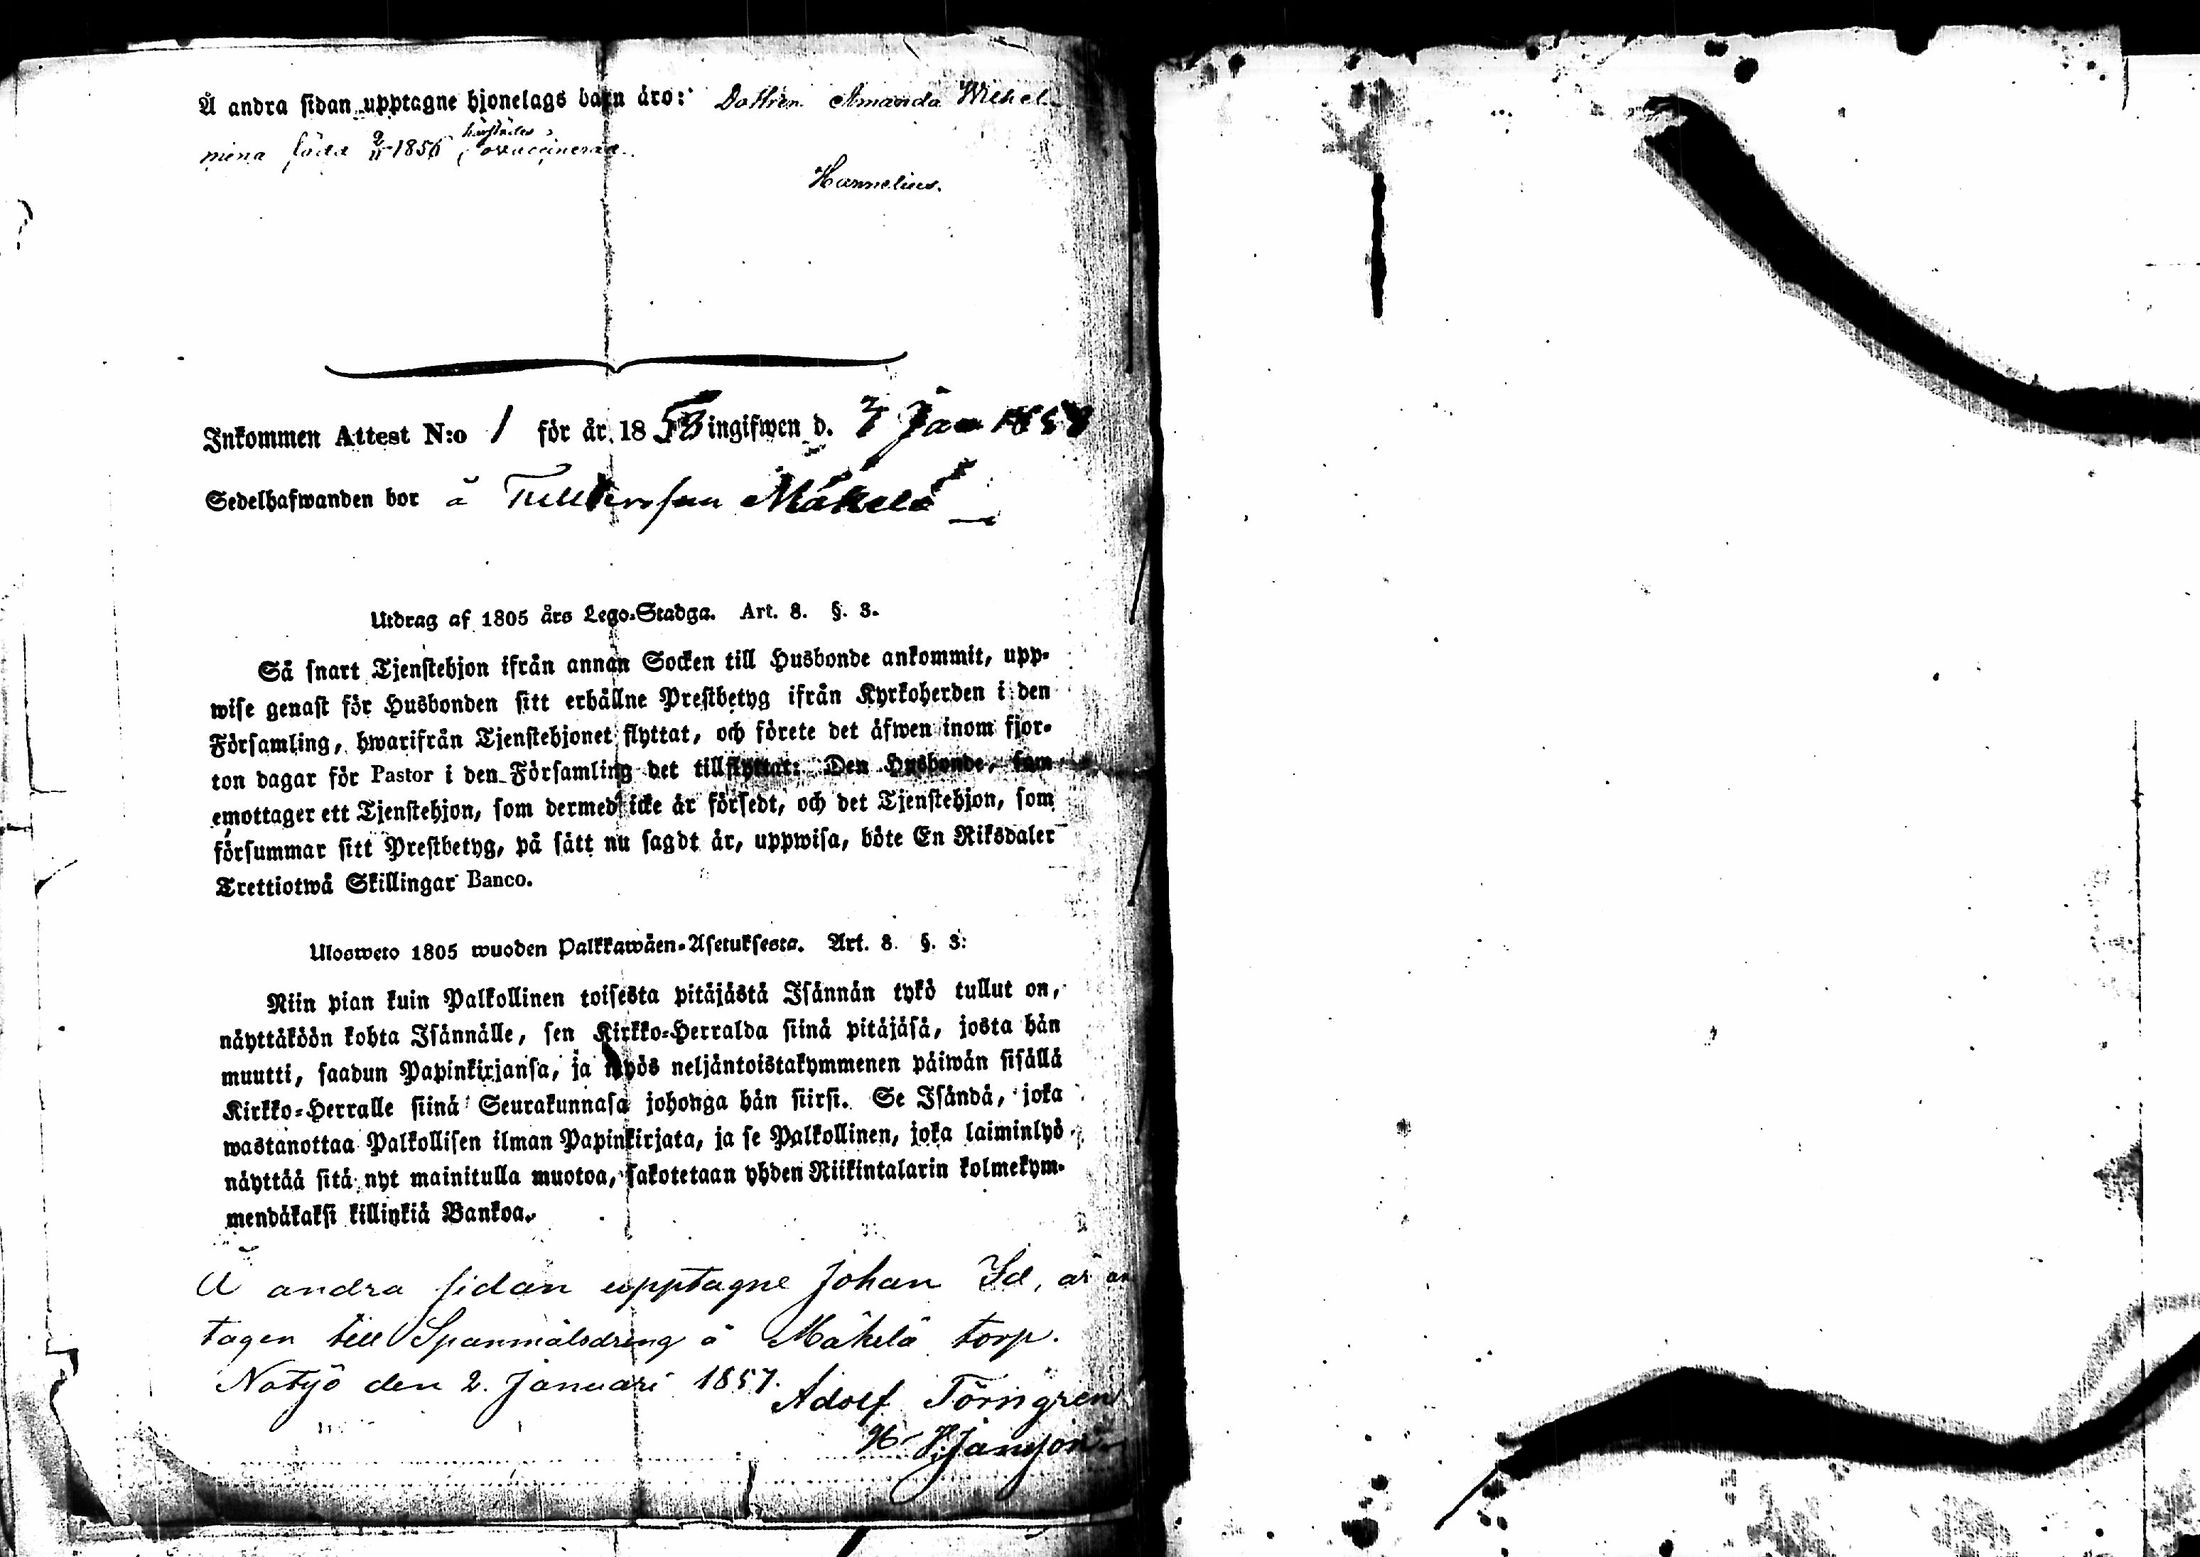 Å andra sidan upptagne hjonelags barn äro: Dottren Amanda Wilhel-
mina född 9/11 1856, härstädes ovaccinerad.
Hannelius.
Inkommen Attest N:o 1 för år 1858 ingifwen d. Jan 1858
Sedelhafwanden bor å Mäkelä
Utdrag af 1805 års Lego-Stadga. Art. 8. §. 3.
Så snart Tjenstehjon ifrån annan Socken till Husbonde ankommit, upp-
wise genast för Husbonden sitt erhållne Prestbetyg ifrån Kyrkoherden i den
Församling, hwarifrån Tjenstehjonet flyttat, och förete det äfwen inom fjor-
ton dagar för Pastor i den Församling det tillflyttat: Den Husbonde, som
emottager ett Tjenstehjon, som dermed icke är försedt, och det Tjenstehjon, som
försummar sitt Prestbetyg, på sätt nu sagdt är, uppwisa, böte En Riksdaler
Trettiotwå Skillingar Banco.
Ulosweto 1805 wuoden Palkkawäen-Asetuksesta. Art. 8. §. 3:
Niin pian kuin Palkollinen toisesta pitäjästä Isännän tykö tullut on,
näyttäköön kohta Isännälle, sen Kirkko-Herralda siinä pitäjäsä, josta hän
muutti, saadun Papinkirjansa, ja myös neljäntoistakymmenen päiwän sisällä
Kirkko-Herralle siinä Seurakunnasa johonga hän siirsi. Se Isändä, joka
wastanottaa Palkollisen ilman Papinkirjata, ja se Palkollinen, joka laiminlyö
näyttää sitä nyt mainitulla muotoa, sakotetaan yhden Riikintalarin kolmekym-
mendäkaksi killinkiä Bankoa.
Å andra sidan upptagne Johan Id, är an
tagen till Spanmålsdreng å Mäkelä torp.
Notsjö den 2. Januari 1857.
Adolf Törngren
H. Jansson